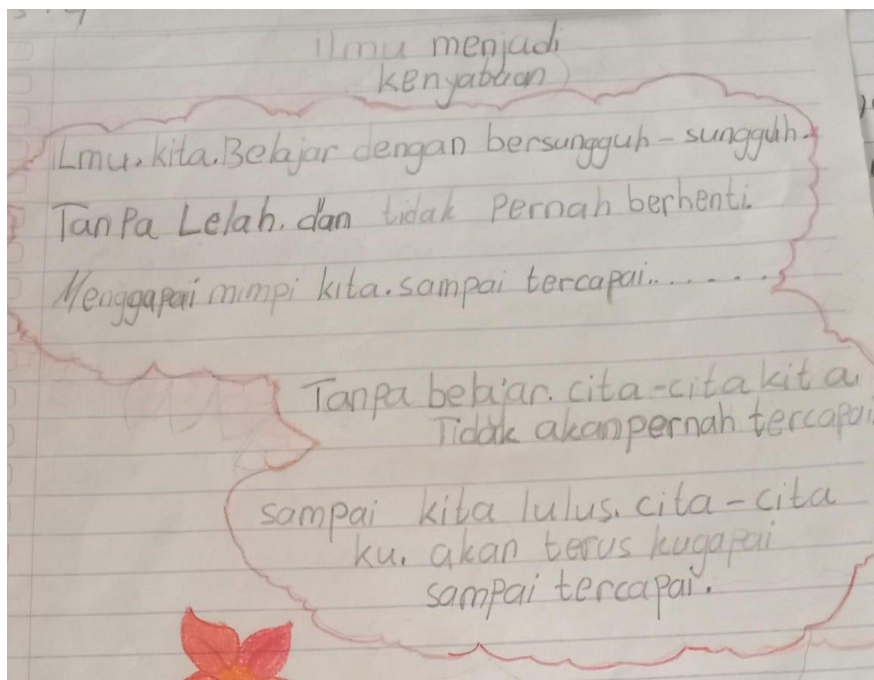 ilmu menjadi
kenyataan
iLmu. kita. Belajar dengan bersungguh - sungguh.
TanPa Lelah. dan tidak Pernah berhenti.
Menggapai mimpi kita. sampai tercapai.........
Tanpa belajar. cita-cita kita.
Tidak akan pernah tercapai
sampai kita lulus. cita-cita
ku. akan terus kugapai
sampai tercapai.